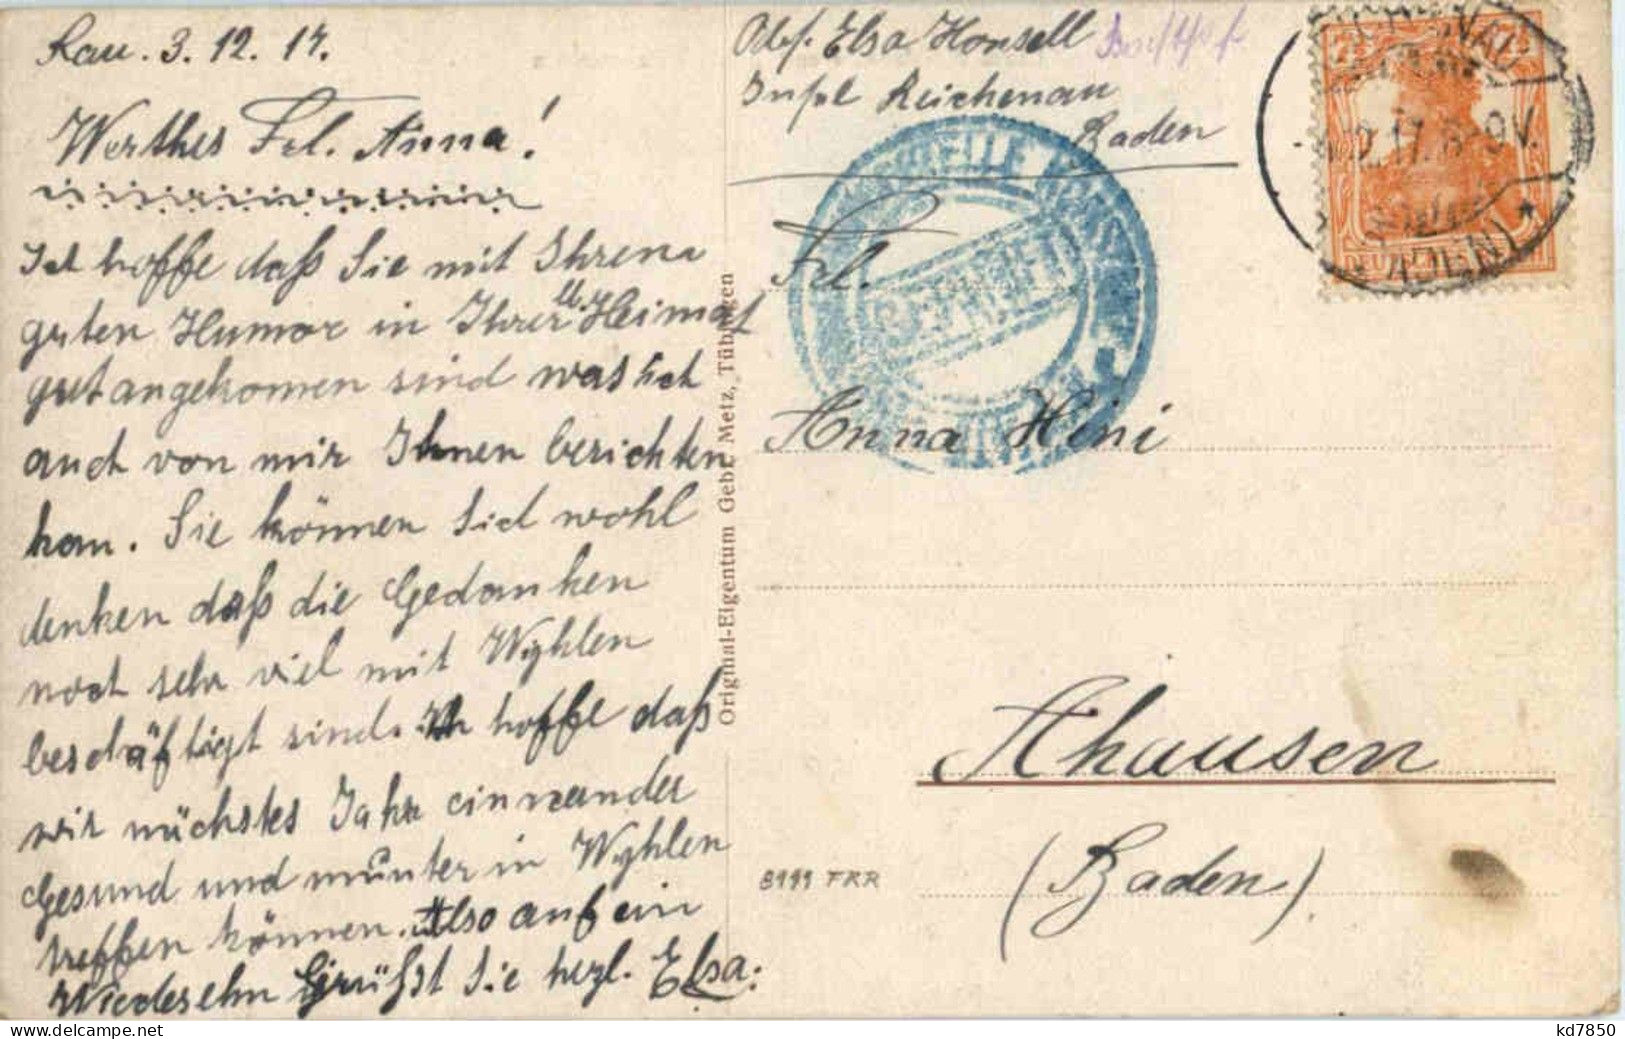 Rau. 3. 12. 17.
Werthes Frl. Anna!
Ich hoffe daß Sie mit Ihrem
guten Humor in Ihrer lb. Heimat
gut angekomen sind was ich
auch von mir Ihnen berichten
kan. Sie können Sich wohl
denken daß die Gedanken
noch sehr viel mit Wyhlen
beschäftigt sind. Ich hoffe daß
wir nächstes Jahr einnander
Gesund und munter in Wyhlen
treffen können. Also auf ein
Wiedersehn Grüßst Sie herzl. Elsa.
Original-Eigentum Gebr. Metz, Tübingen
Abs. Elsa Honsell
Insel Reichenau
Baden
Frl.
Anna Hini
Ahausen
(Baden).
8999 FRR
kd7850